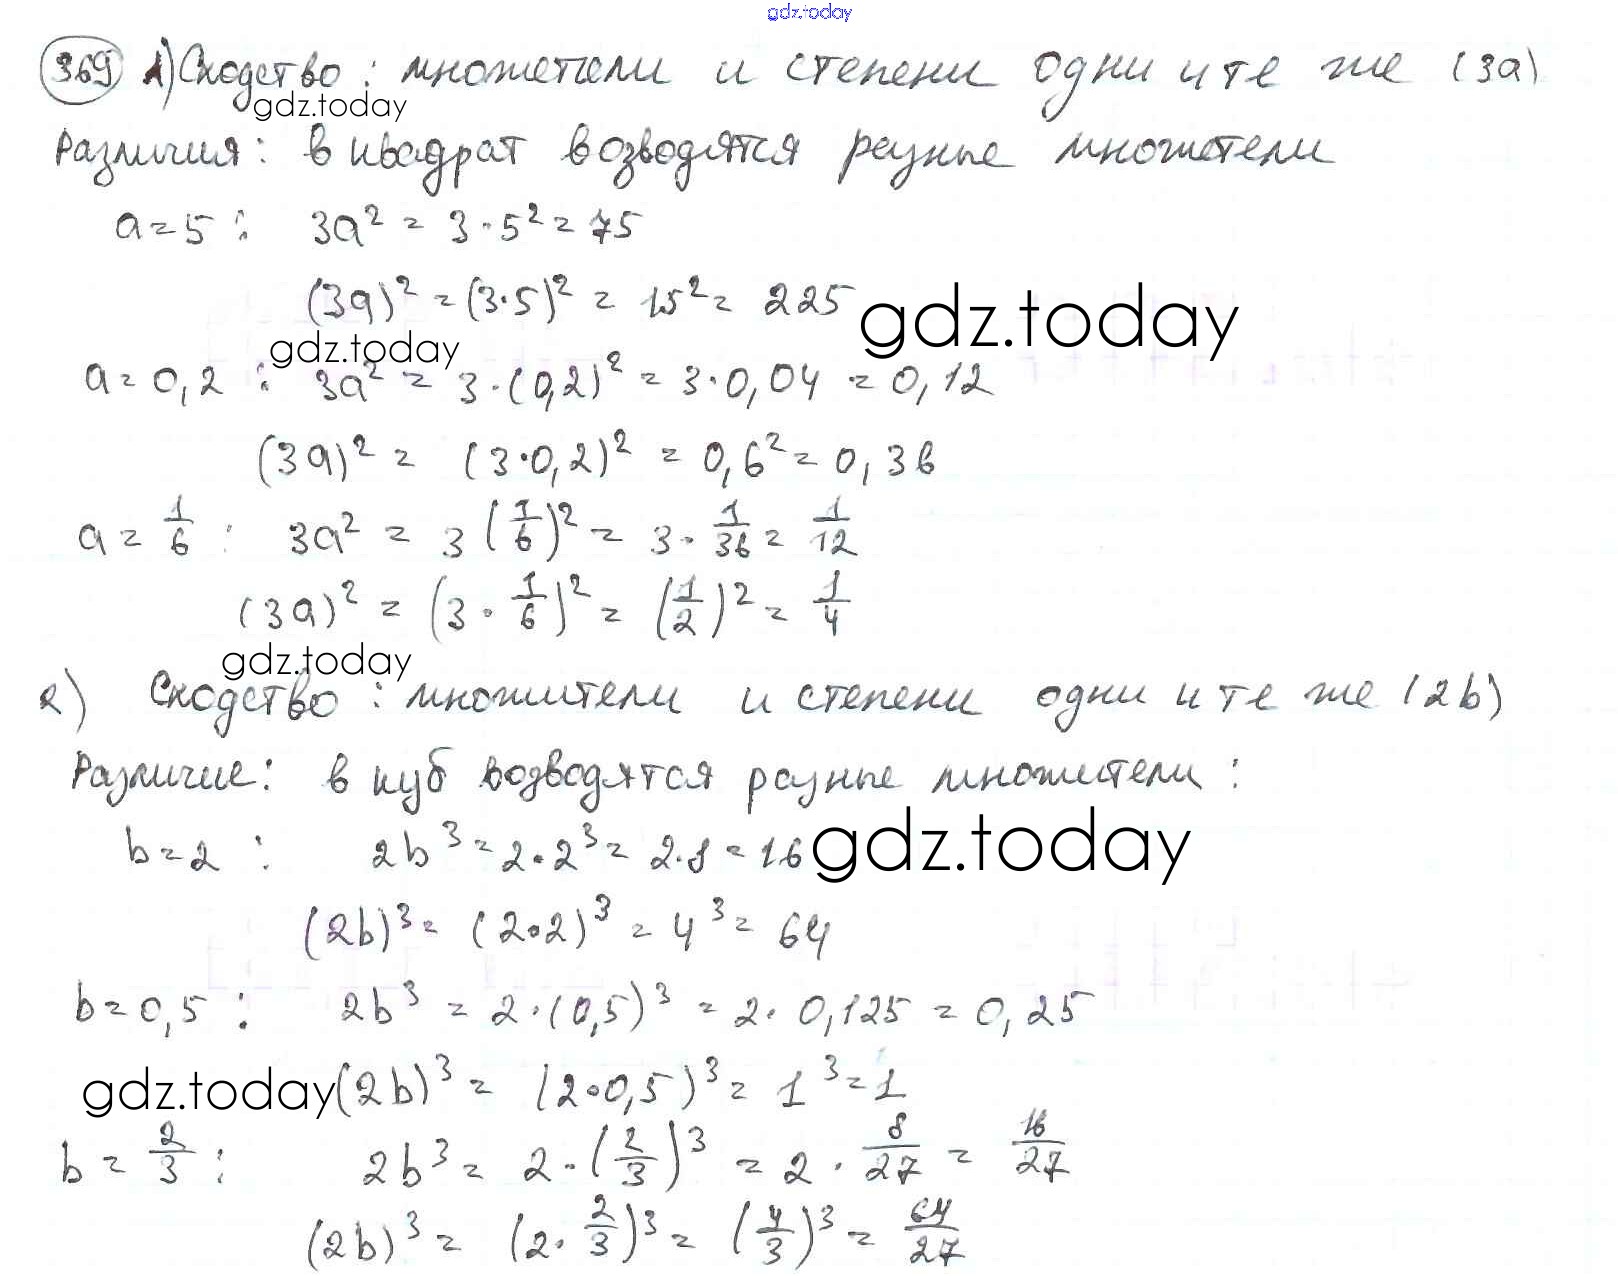 gdz.today
369 1) Сходство: множетели и степени одни и те же (3a)
gdz.today
Различия: в квадрат возводятся разные множетели
a = 5 : 3a² = 3 · 5² = 75
(3a)² = (3·5)² = 15² = 225
gdz.today
gdz.today
a = 0,2 : 3a² = 3 · (0,2)² = 3 · 0,04 = 0,12
(3a)² = (3·0,2)² = 0,6² = 0,36
a = 1/6 : 3a² = 3 (1/6)² = 3 · 1/36 = 1/12
(3a)² = (3 · 1/6)² = (1/2)² = 1/4
gdz.today
2) Сходство : множители и степени одни и те же (2b)
Различие: в куб возводятся разные множители :
b = 2 : 2b³ = 2 · 2³ = 2·8 = 16
gdz.today
(2b)³ = (2·2)³ = 4³ = 64
b = 0,5 : 2b³ = 2·(0,5)³ = 2 · 0,125 = 0,25
gdz.today (2b)³ = (2·0,5)³ = 1³ = 1
b = 2/3 : 2b³ = 2 · (2/3)³ = 2 · 8/27 = 16/27
(2b)³ = (2 · 2/3)³ = (4/3)³ = 64/27